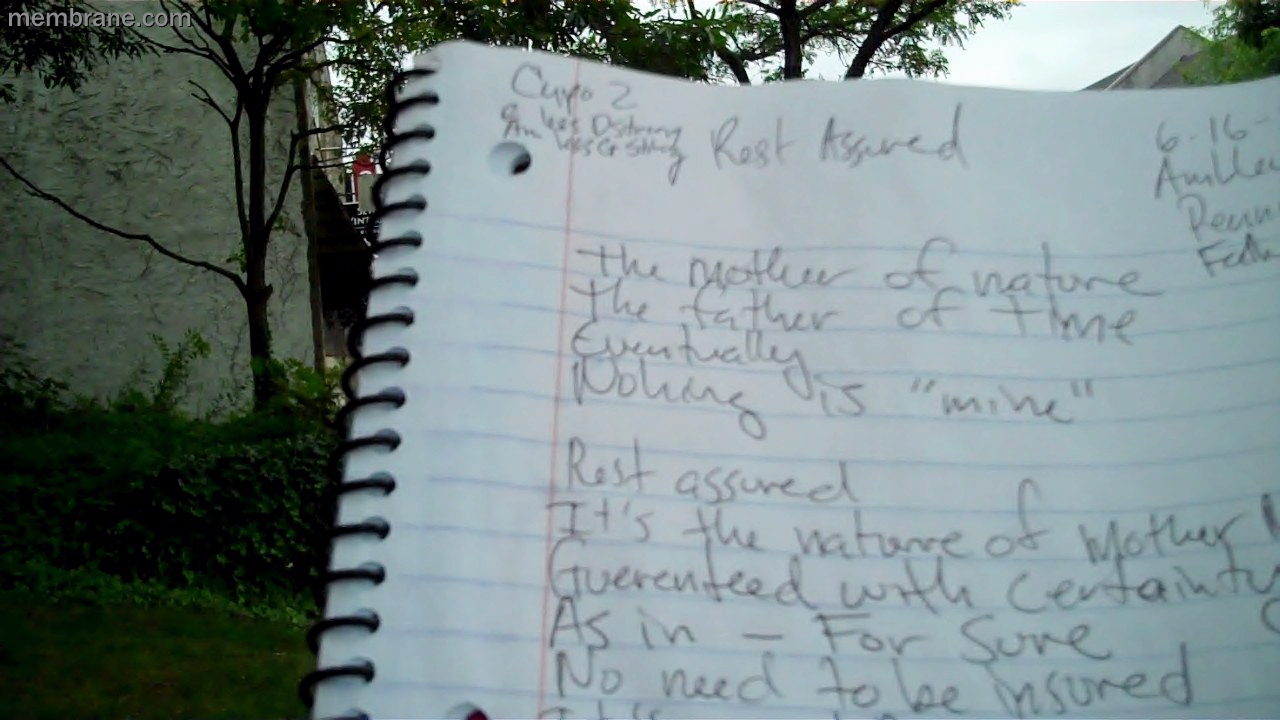 membrane.com
Capo 2
Rest Assured
6-16-
The mother of nature
The father of time
Eventually
Nohing is "mine"
Rest assured
It's the nature of Mother
Guerenteed with certainty
As in — For Sure
No need to be insured
It's